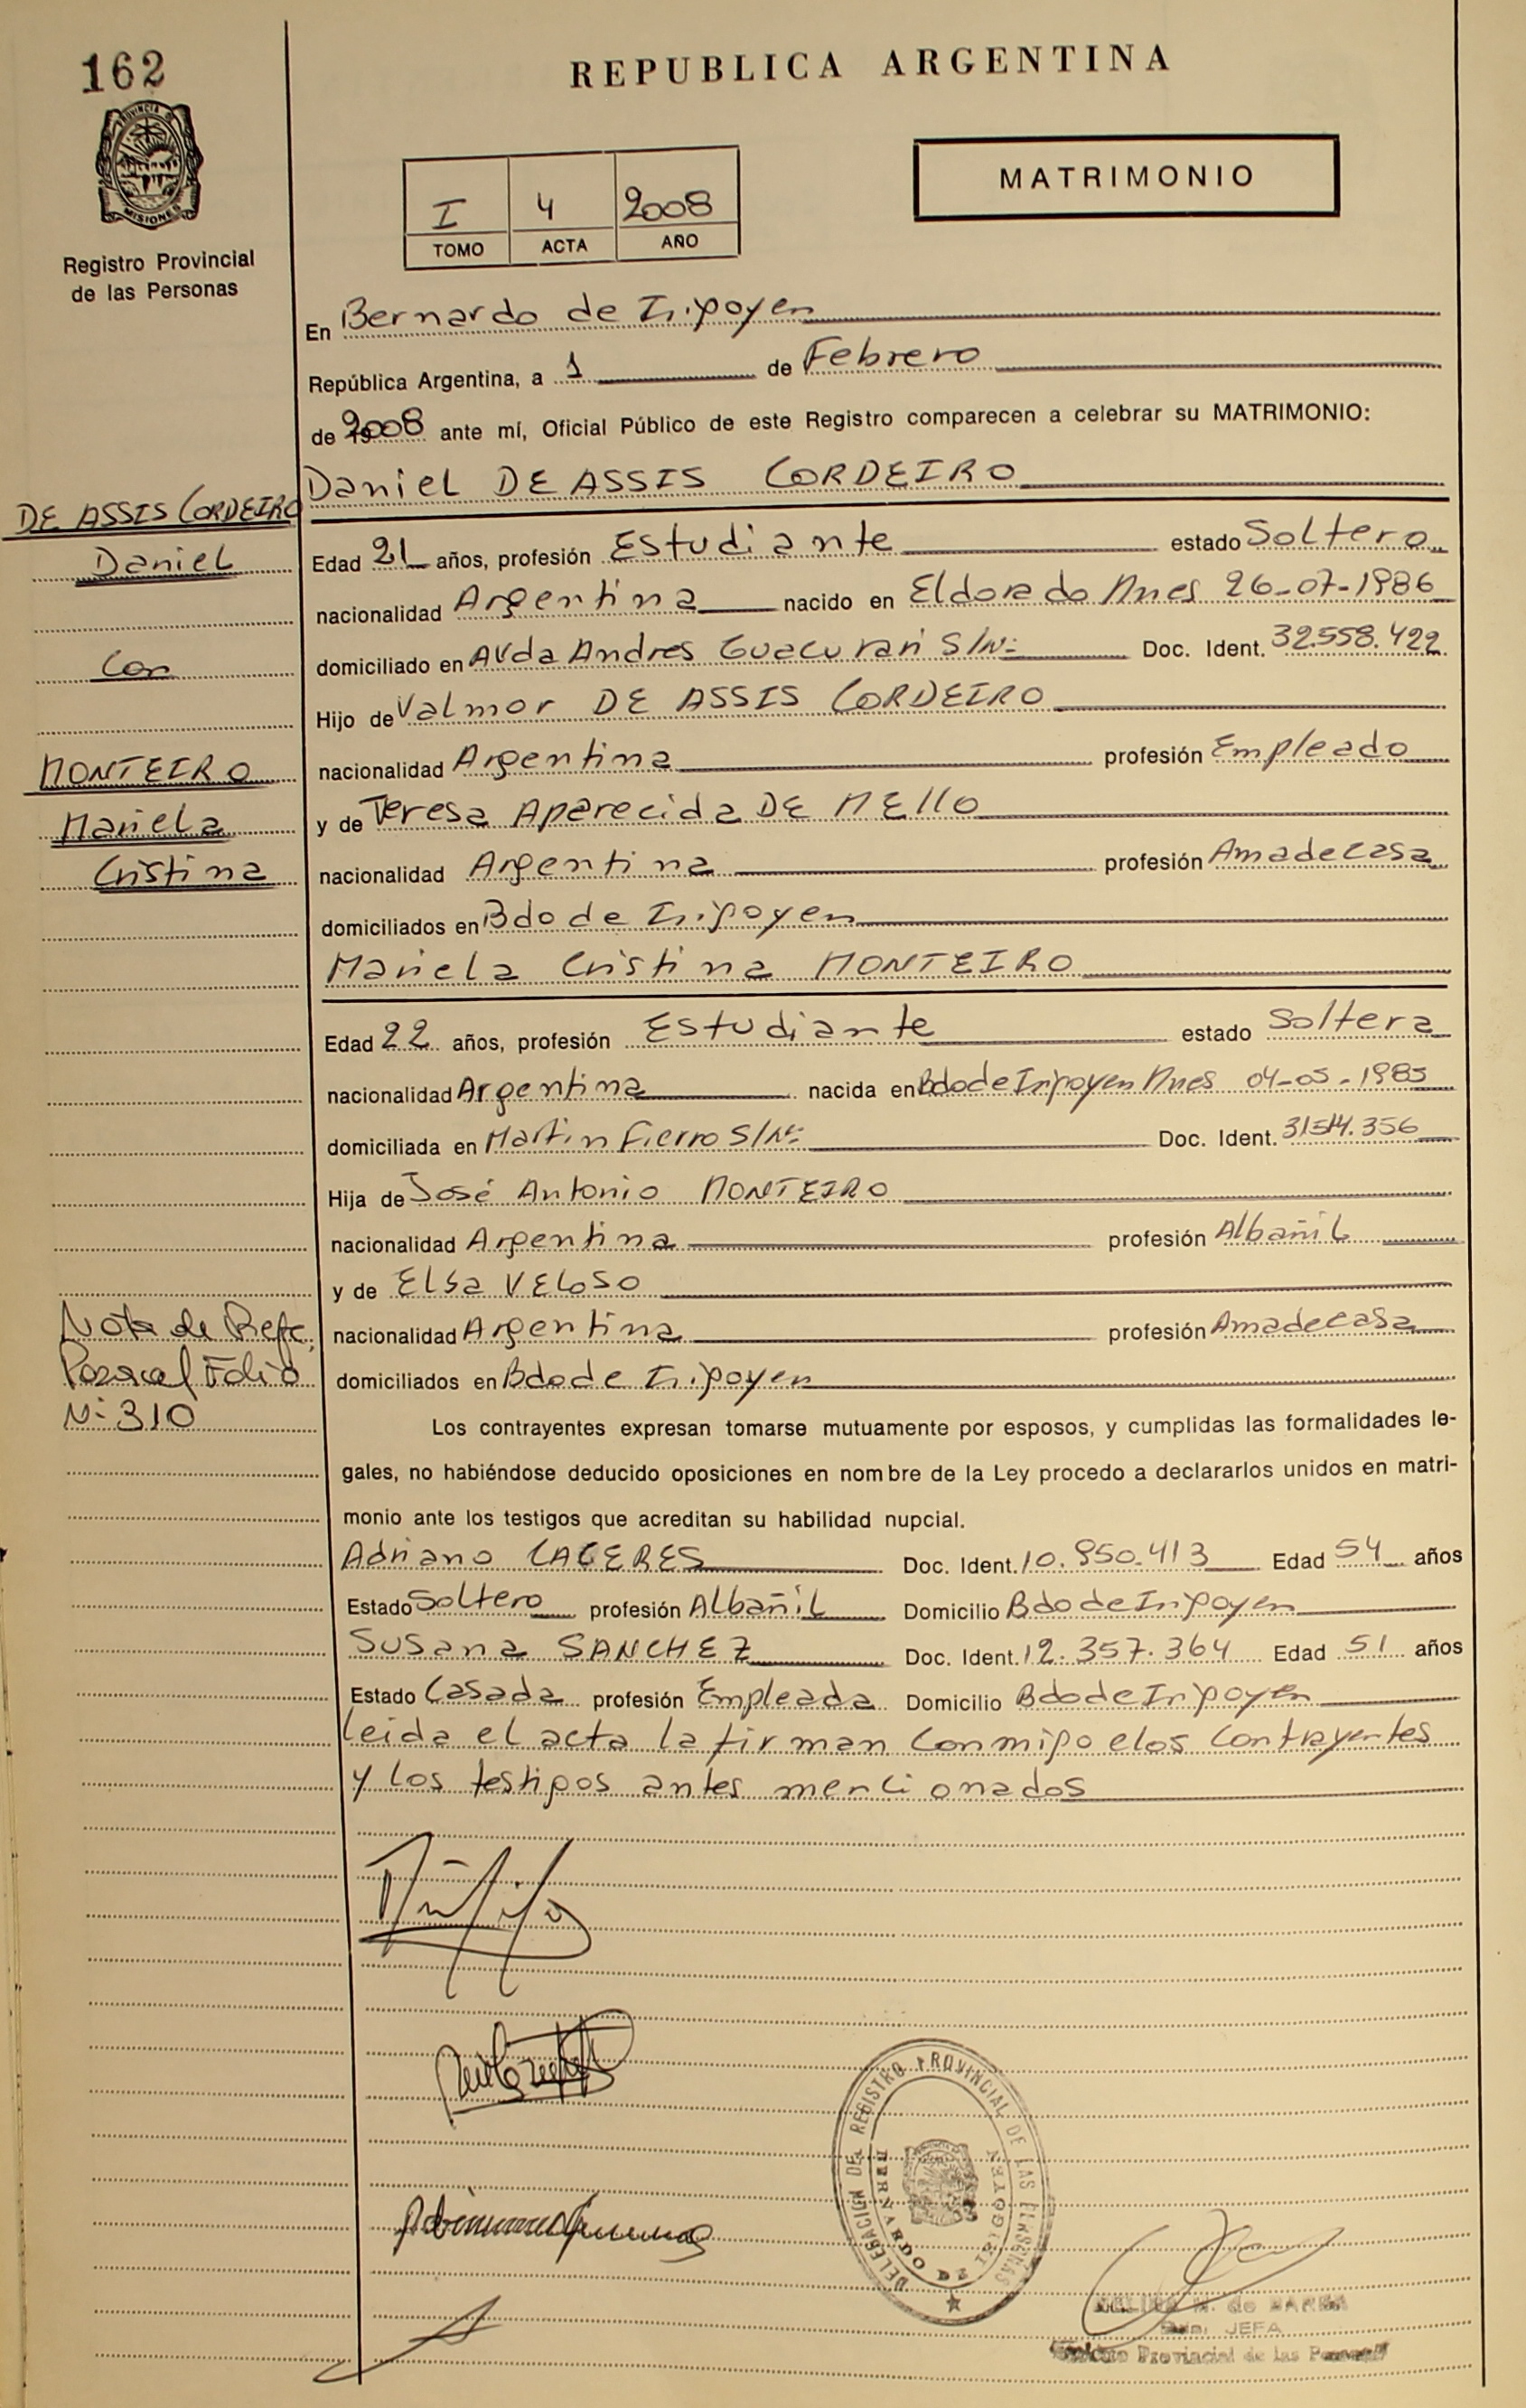 162
REPUBLICA ARGENTINA
PROVINCIA DE MISIONES
Registro Provincial
de las Personas
MATRIMONIO
I 4 2008
TOMO ACTA AÑO
En Bernardo de Irigoyen
República Argentina, a 1 de Febrero
de 2008 ante mí, Oficial Público de este Registro comparecen a celebrar su MATRIMONIO:
Daniel DE ASSIS CORDEIRO
DE ASSIS CORDEIRO
Daniel
Con
MONTEIRO
Mariela
Cristina
Edad 21 años, profesión Estudiante estado Soltero
nacionalidad Argentina nacido en Eldorado Mnes 26-07-1986
domiciliado en Avda Andres Guacurari S/Nº Doc. Ident. 32.558.422
Hijo de Valmor DE ASSIS CORDEIRO
nacionalidad Argentina profesión Empleado
y de Teresa Aparecida DE MEllO
nacionalidad Argentina profesión Ama de casa
domiciliados en Bdo de Irigoyen
Mariela Cristina MONTEIRO
Edad 22 años, profesión Estudiante estado Soltera
nacionalidad Argentina nacida en Bdo de Irigoyen Mnes 04-05-1985
domiciliada en Martin Fierro S/Nº Doc. Ident. 31.514.356
Hija de José Antonio MONTEIRO
nacionalidad Argentina profesión Albañil
y de Elsa VELOSO
nacionalidad Argentina profesión Ama de casa
domiciliados en Bdo de Irigoyen
Nota de Refe.
Folio
Nº 310
Los contrayentes expresan tomarse mutuamente por esposos, y cumplidas las formalidades le-
gales, no habiéndose deducido oposiciones en nombre de la Ley procedo a declararlos unidos en matri-
monio ante los testigos que acreditan su habilidad nupcial.
Adriano CACERES Doc. Ident. 10.950.413 Edad 54 años
Estado Soltero profesión Albañil Domicilio Bdo de Irigoyen
Susana SANCHEZ Doc. Ident. 12.357.364 Edad 51 años
Estado Casada profesión Empleada Domicilio Bdo de Irigoyen
leida el acta la firman conmigo elos contrayentes
y los testigos antes mencionados
DELEGACION DEL REGISTRO PROVINCIAL DE LAS PERSONAS
BERNARDO DE IRIGOYEN
JEFA
Provincial de las